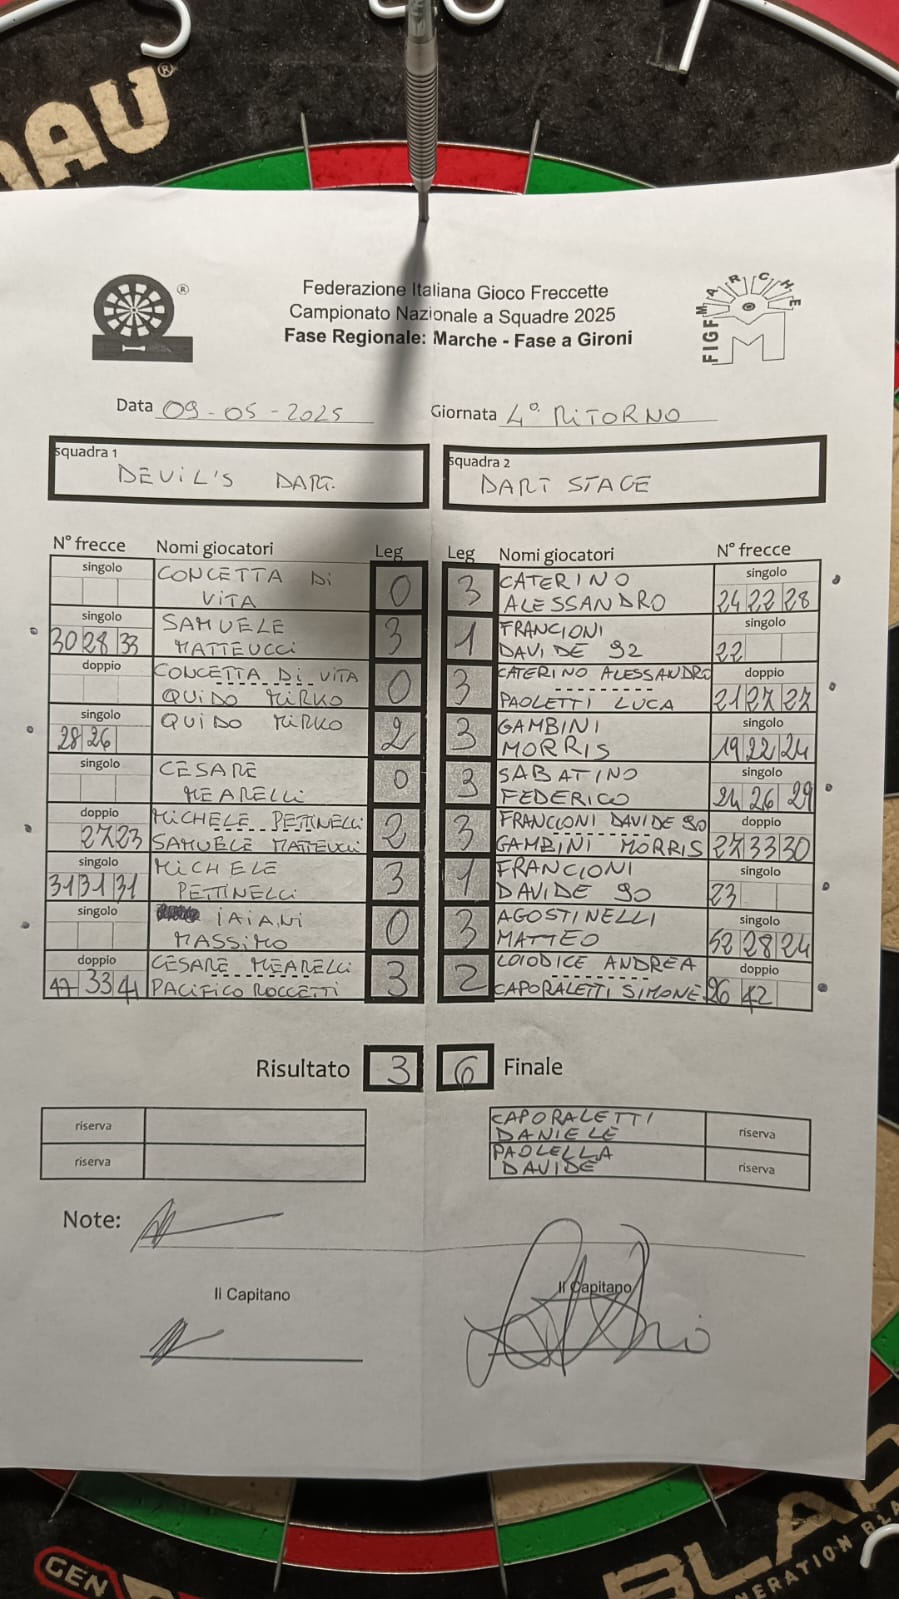 NAU®
®
Federazione Italiana Gioco Freccette
Campionato Nazionale a Squadre 2025
Fase Regionale: Marche - Fase a Gironi
FIGF MARCHE
M
Data 09-05-2025 Giornata 4° RITORNO
squadra 1 DEVIL'S DART.
squadra 2 DART STAGE
N° frecce Nomi giocatori Leg Leg Nomi giocatori N° frecce
singolo CONCETTA DI VITA 0 3 CATERINO ALESSANDRO singolo 24 22 28
singolo 30 28 33 SAMUELE MATTEUCCI 3 1 FRANCIONI DAVIDE 92 singolo 22
doppio CONCETTA DI VITA QUIDO MIRKO 0 3 CATERINO ALESSANDRO PAOLETTI LUCA doppio 21 27 27
singolo 28 26 QUIDO MIRKO 2 3 GAMBINI MORRIS singolo 19 22 24
singolo CESARE MEARELLI 0 3 SABATINO FEDERICO singolo 24 26 29
doppio 27 23 MICHELE PETTINELLI SAMUELE MATTEUCCI 2 3 FRANCIONI DAVIDE 90 GAMBINI MORRIS doppio 27 33 30
singolo 31 31 31 MICHELE PETTINELLI 3 1 FRANCIONI DAVIDE 90 singolo 23
singolo IAIANI MASSIMO 0 3 AGOSTINELLI MATTEO singolo 52 28 24
doppio 47 33 41 CESARE MEARELLI PACIFICO ROCCETTI 3 2 LOIODICE ANDREA CAPORALETTI SIMONE doppio 26 42
Risultato 3 6 Finale
riserva CAPORALETTI DANIELE riserva
riserva PAOLELLA DAVIDE riserva
Note:
Il Capitano Il Capitano
GEN
BLAD
NERATION BLA